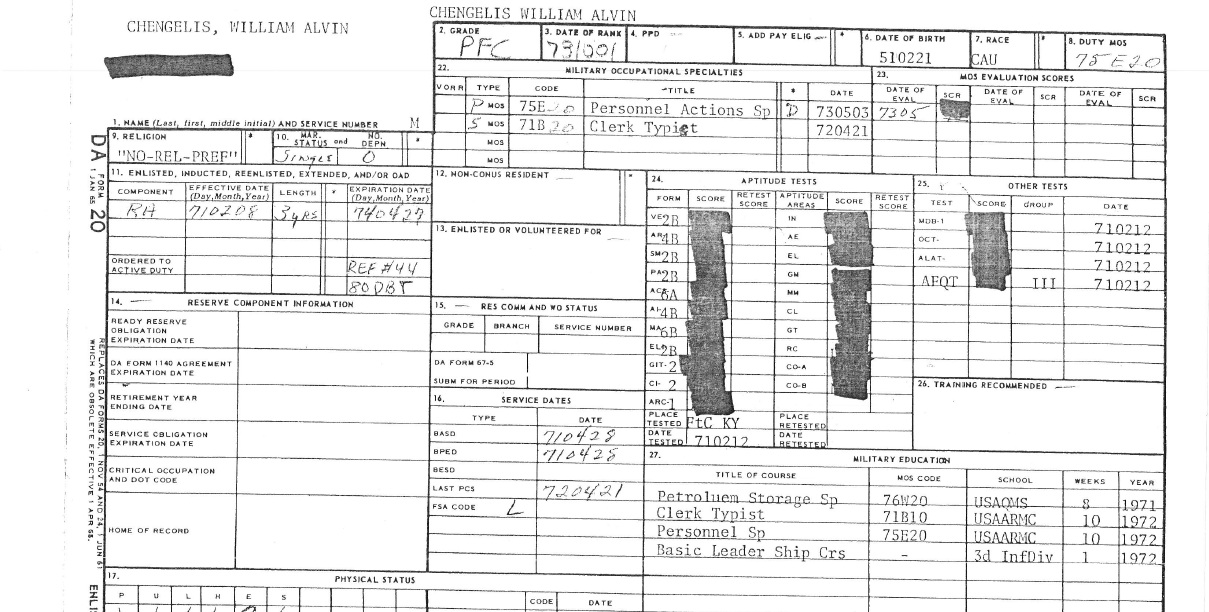 CHENGELIS, WILLIAM ALVIN
CHENGELIS WILLIAM ALVIN
1. NAME (Last, first, middle initial) AND SERVICE NUMBER M
2. GRADE
PFC
3. DATE OF RANK
4. PPD —
5. ADD PAY ELIG — *
6. DATE OF BIRTH
510221
7. RACE *
CAU
8. DUTY MOS
75E20
9. RELIGION *
"NO-REL-PREF"
10. MAR. STATUS and NO. DEPN. *
Single 0
11. ENLISTED, INDUCTED, REENLISTED, EXTENDED, AND/OR OAD
COMPONENT EFFECTIVE DATE (Day,Month,Year) LENGTH * EXPIRATION DATE (Day,Month,Year)
RA 710208 3yrs 740427
ORDERED TO ACTIVE DUTY
REF #44
80 DBT
12. NON-CONUS RESIDENT — *
13. ENLISTED OR VOLUNTEERED FOR —
14. — RESERVE COMPONENT INFORMATION
READY RESERVE
OBLIGATION
EXPIRATION DATE
DA FORM 1140 AGREEMENT
EXPIRATION DATE
RETIREMENT YEAR
ENDING DATE
SERVICE OBLIGATION
EXPIRATION DATE
CRITICAL OCCUPATION
AND DOT CODE
HOME OF RECORD
15. — RES COMM AND WO STATUS
GRADE BRANCH SERVICE NUMBER
DA FORM 67-5
SUBM FOR PERIOD
16. SERVICE DATES
TYPE DATE
BASD 710428
BPED 710428
BESD
LAST PCS 720421
FSA CODE L
17. PHYSICAL STATUS
P U L H E S
CODE DATE
22. MILITARY OCCUPATIONAL SPECIALTIES
V OR R TYPE CODE TITLE * DATE
P MOS Personnel Actions Sp D 730503
S MOS 71B20 Clerk Typist 720421
MOS
MOS
23. MOS EVALUATION SCORES
DATE OF EVAL SCR DATE OF EVAL SCR DATE OF EVAL SCR
7305
24. APTITUDE TESTS
FORM SCORE RETEST SCORE APTITUDE AREAS SCORE RETEST SCORE
VE 2B IN
AR 4B AE
SM 2B EL
PA 2B GM
ACS 6A MM
AI 4B CL
MA 6B GT
ELI 2B RC
GIT- 2 CO-A
CI- 2 CO-B
ARC-1
PLACE TESTED FtC KY PLACE RETESTED
DATE TESTED 710212 DATE RETESTED
25. OTHER TESTS
TEST SCORE GROUP DATE
MDB-1 710212
OCT- 710212
ALAT- 710212
AFQT III 710212
26. TRAINING RECOMMENDED —
27. MILITARY EDUCATION
TITLE OF COURSE MOS CODE SCHOOL WEEKS YEAR
Petroluem Storage Sp 76W20 USAQMS 8 1971
Clerk Typist 71B10 USAARMC 10 1972
Personnel Sp 75E20 USAARMC 10 1972
Basic Leader Ship Crs - 3d InfDiv 1 1972
DA FORM 20
1 JAN 65
REPLACES DA FORMS 20, 1 NOV 54 AND 24, 1 JUN 61
WHICH ARE OBSOLETE EFFECTIVE 1 APR 65.
ENLIS